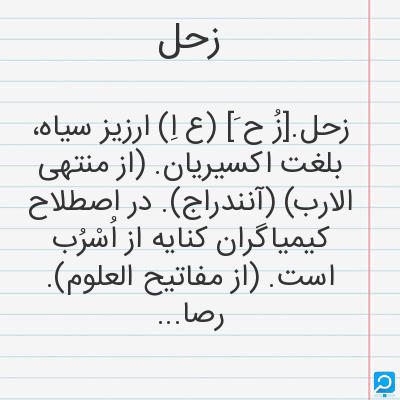 زحل
زحل.[زُ ح َ] (ع اِ) ارزیز سیاه،
بلغت اکسیریان. (از منتهی
الارب) (آنندراج). در اصطلاح
کیمیاگران کنایه از اُسْرُب
است. (از مفاتیح العلوم).
رصا...